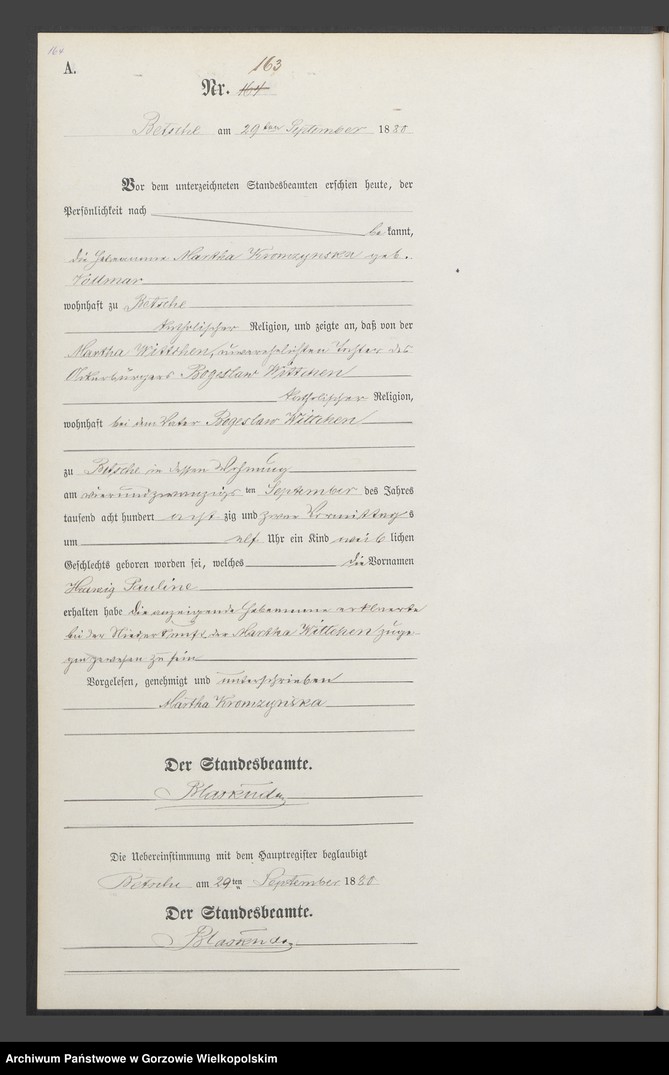 164
A.
163
Nr. 164
Betsche am 29ten September 1880
Vor dem unterzeichneten Standesbeamten erschien heute, der
Persönlichkeit nach
bekannt,
die Hebeamme Martha Kromzynska geb.
Vollmar
wohnhaft zu Betsche
katholischer Religion, und zeigte an, daß von der
Martha Wittchen, unverehelichten Tochter des
Ackerbürgers Bogeslaw Wittchen
katholischer Religion,
wohnhaft bei dem Vater Bogeslaw Wittchen
zu Betsche in dessen Wohnung
am vierundzwanzigsten September des Jahres
tausend acht hundert achtzig und Vormittags
um elf Uhr ein Kind weiblichen
Geschlechts geboren worden sei, welches die Vornamen
Hedwig Pauline
erhalten habe die anzeigende Hebeamme erklaerte
bei der Niederkunft der Martha Wittchen zuge-
gen gewesen zu sein
Vorgelesen, genehmigt und unterschrieben
Martha Kromzynska
Der Standesbeamte.
Die Uebereinstimmung mit dem Hauptregister beglaubigt
Betsche am 29ten September 1880
Der Standesbeamte.
Archiwum Państwowe w Gorzowie Wielkopolskim